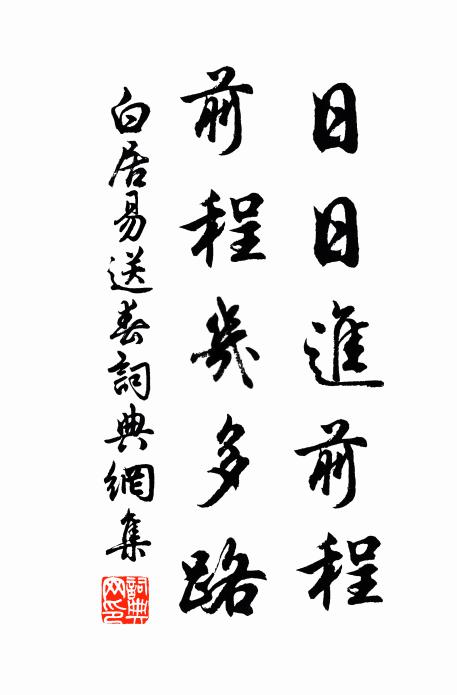 日日進前程
前程幾多路
白居易送春詞典網集
詞典网印